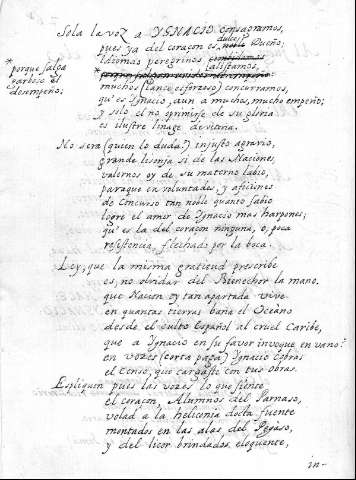 Sola la voz a YGNACIO consagramos,
pues ya del coraçon es noble Dueño;
dulce
Idiomas peregrinos combidamos
alistamos,
* porque salga
garboso el
desempeño;
* porque salga
muchos (lance esforzoso) concurramos,
qu'es Ignacio, aun a muchos, mucho empeño;
y solo el no oprimirse de su gloria
es ilustre linage de victoria.
No sera (quien lo duda?) injusto agravio,
grande lisonja si de las Naciones
valernos oy de su materno labio,
paraque en voluntades, y aficiones
do Concurso tan noble quanto sabio
logre el amor de Ygnacio mas harpones;
qu'es la del coraçon ninguna, o, poca
resistencia, flechado por la boca.
Ley, que la misma gratitud prescribe
es, no olvidar del Bienechor la mano.
que Nacion oy tan apartada vive
en quantas tierras baña el Oceàno
desde el culto Español al cruel Caribe,
que a Ignacio en su favor invoque en vano?
en vozes (corta paga) Ignacio cobras
el Censo, que cargaste con tus obras.
Espliquen pues las vozes lo que siente
el coraçon, Alumnos del Parnaso,
volad a la heliconia docta fuente
montados en las alas del Pegaso,
y del licor brindados, eloquente,
in-